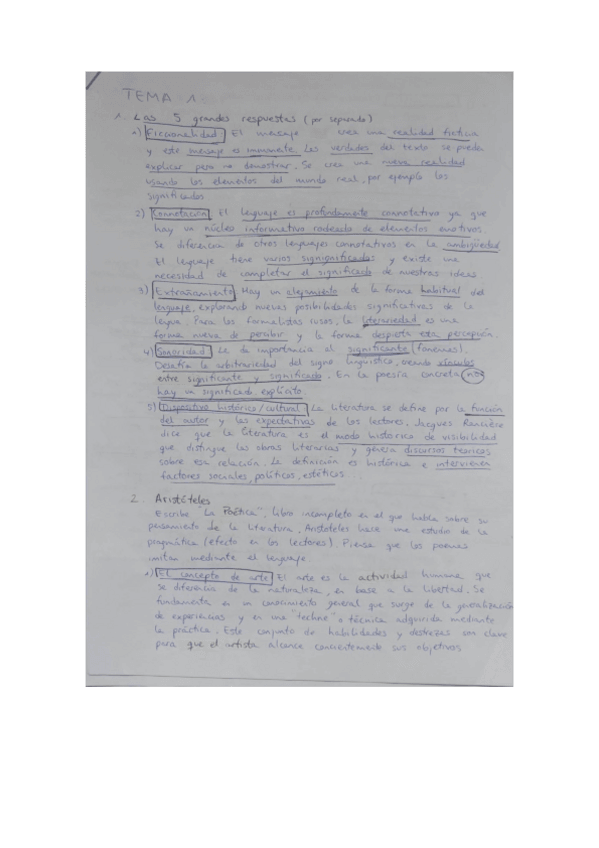 TEMA 1.
1. Las 5 grandes respuestas (por separado)
1) Ficcionalidad: El mensaje crea una realidad ficticia
y este mensaje es inmanente. Las verdades del texto se pueden
explicar pero no demostrar. Se crea una nueva realidad
usando los elementos del mundo real, por ejemplo los
significados
2) Connotación: El lenguaje es profundamente connotativo ya que
hay un núcleo informativo rodeado de elementos emotivos.
Se diferencia de otros lenguajes connotativos en la ambigüedad
El lenguaje tiene varios significados y existe una
necesidad de completar el significado de nuestras ideas.
3) Extrañamiento: Hay un alejamiento de la forma habitual del
lenguaje, explorando nuevas posibilidades significativas de la
lengua. Para los formalistas rusos, la literariedad es una
forma nueva de percibir y la forma despierta esta percepción.
4) Sonoridad: Le da importancia al significante (fonemas).
Desafía la arbitrariedad del signo lingüístico, creando vínculos
entre significante y significado. En la poesía concreta no
hay un significado explícito.
5) Dispositivo histórico/cultural: La literatura se define por la función
del autor y las expectativas de los lectores. Jacques Rancière
dice que la literatura es el modo histórico de visibilidad
que distingue las obras literarias y genera discursos teóricos
sobre esa relación. La definición es histórica e intervienen
factores sociales, políticos, estéticos
2. Aristóteles
Escribe "La Poética", libro incompleto en el que habla sobre su
pensamiento de la literatura. Aristóteles hace un estudio de la
pragmática (efecto en los lectores). Piensa que los poemas
imitan mediante el lenguaje
El concepto de arte: El arte es la actividad humana que
se diferencia de la naturaleza, en base a la libertad. Se
fundamenta en un conocimiento general que surge de la generalización
de experiencias y en una "techne" o técnica adquirida mediante
la práctica. Este conjunto de habilidades y destrezas son clave
para que el artista alcance concientemente sus objetivos